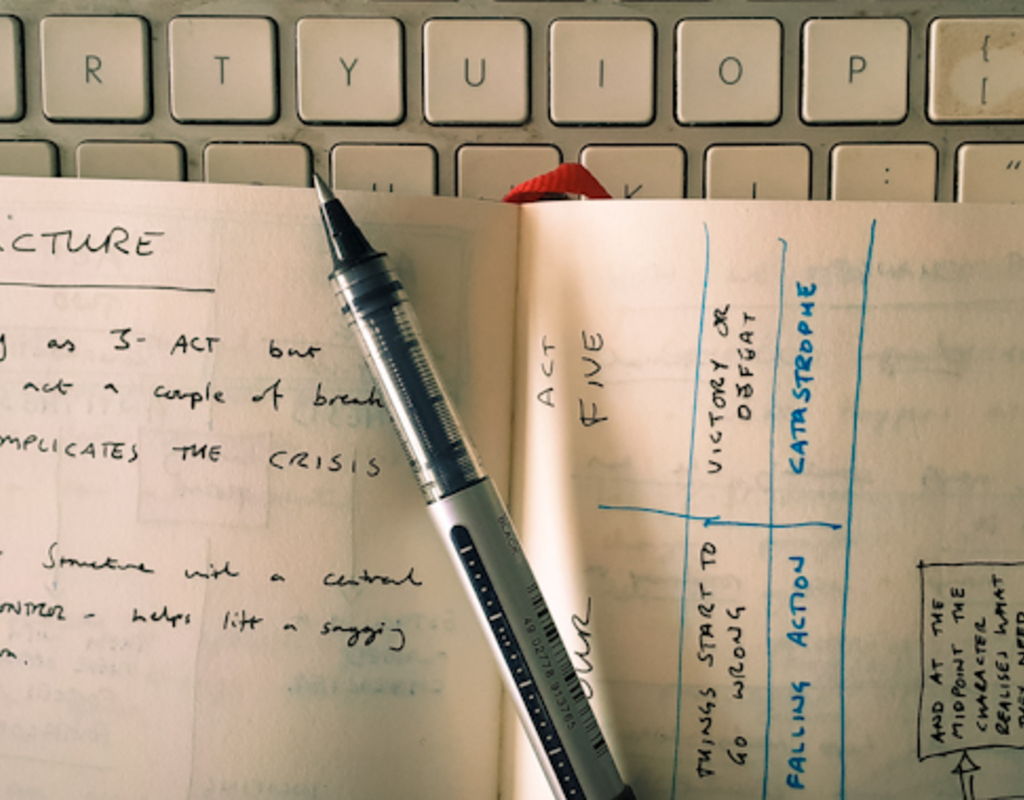 R T Y U I O P {
[
K L : "
CTURE
as 3-ACT but
act a couple of break
MPLICATES THE CRISIS
Structure with a central
- helps lift a sagging
BLACK
49 02778 913765
ACT
FIVE
VICTORY OR
DEFEAT
CATASTROPHE
THINGS START TO
GO WRONG
FALLING ACTION
AND AT THE
MIDPOINT THE
CHARACTER
REALISES WHAT
THEY NEED